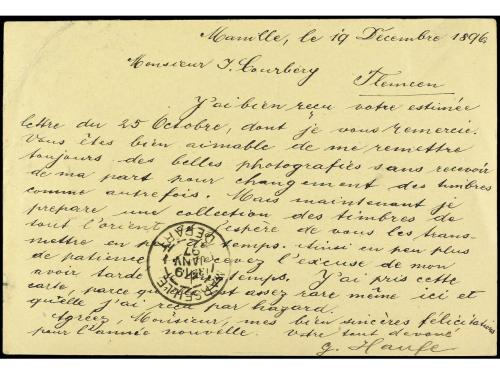 Manille, le 19 Décembre 1896
Monsieur J. Courbery
Tlemcen
J'ai bien reçu votre estimée
lettre du 25 Octobre, dont je vous remercie.
Vous êtes bien aimable de me remettre
toujours des belles photografiés sans recevoir
de ma part pour changement des timbres
comme autrefois. Mais maintenant je
prepare une collection des timbres de
tout l'orient espère de vous les trans-
mettre en temps. Ainsi en peu plus
de patience recevez l'excuse de mon
avoir tardé temps. J'ai pris cette
carte, parce assez rare même ici et
qu'elle j'ai par hazard.
Agréez, Monsieur, mes bien sincères félicitations
pour l'année nouvelle. Votre tout devoué
G. Haufe
MARSEILLE
DEPART
19
JANV
97